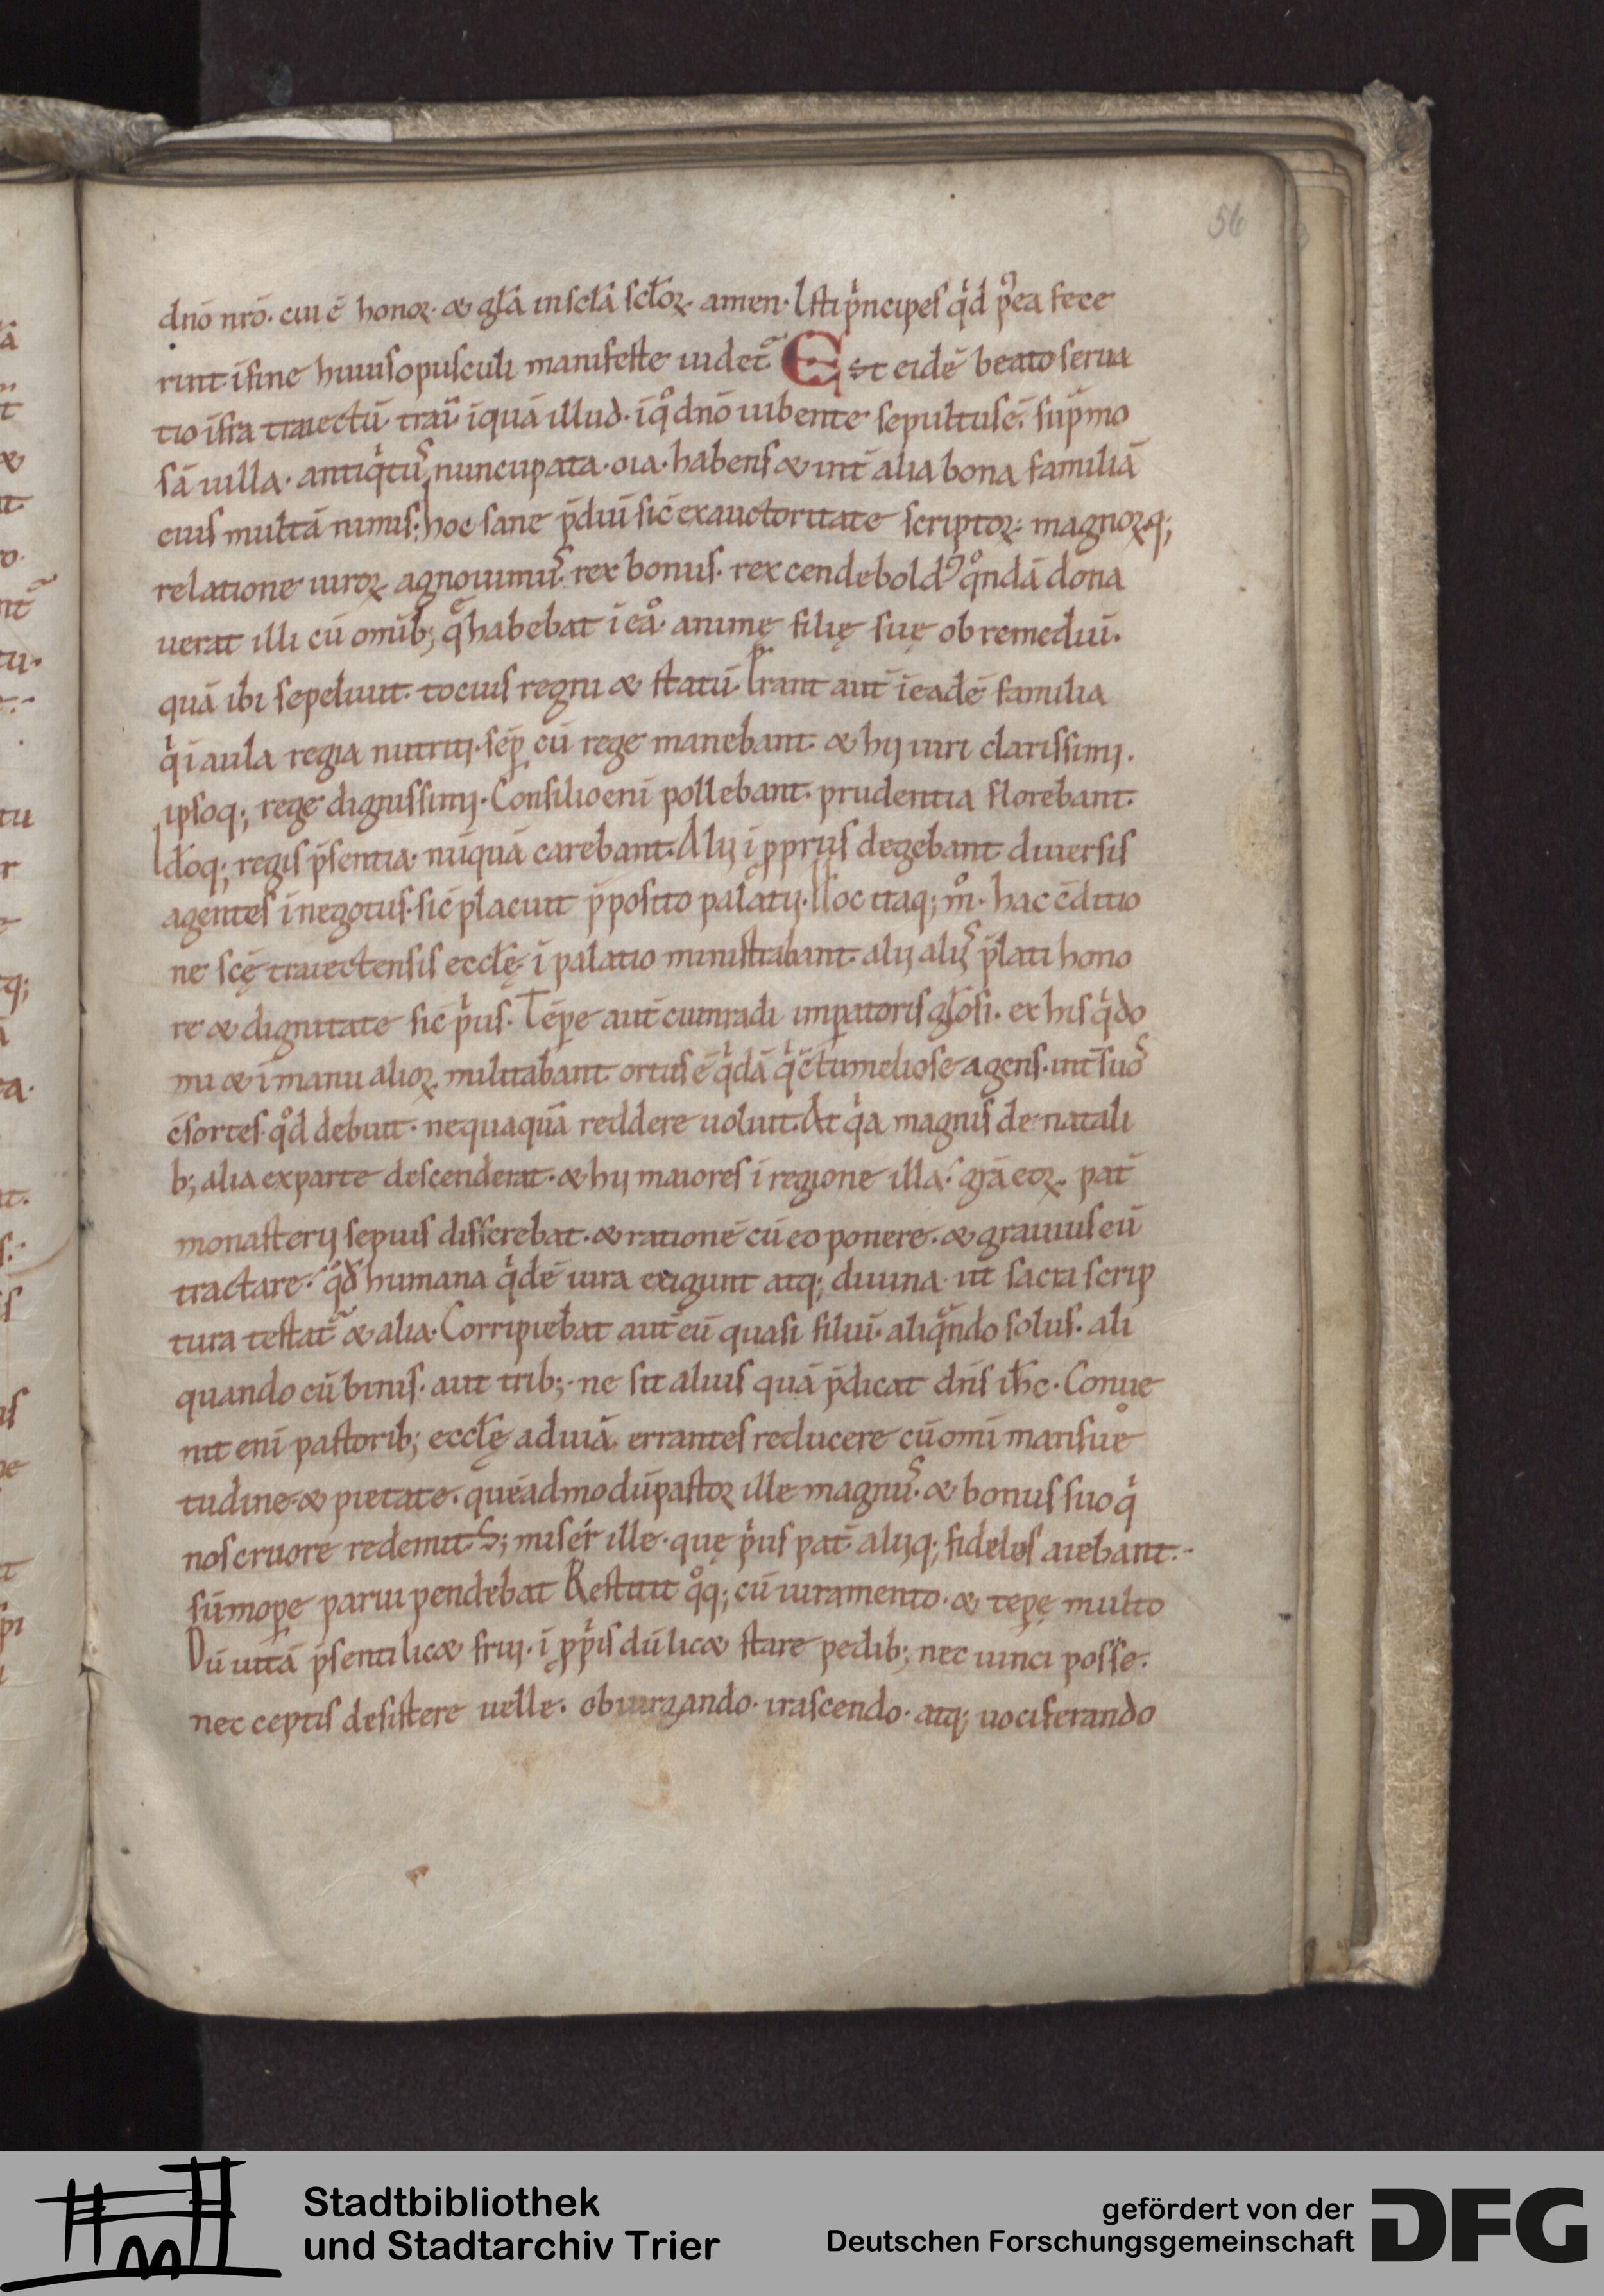 56
dnō nrō. cui ē honoꝝ. & glā in sclā sclōꝝ. amen. Isti p̍ncipes q̍d p̉ea fece
rint ī fine huius opusculi manifeste uidet᷑. Est eidē beato serua
tio īfra traiectū traū īquā illud. ī qͦ dnō iubente sepultus ē. sup̄mo
sā uilla. antiq̍tus nuncupata. oīa. habens & int̄ alia bona familiā
eius multā nimis. hoc sane p̄diū sic̄ ex auctoritate scriptoꝝ. magnoꝝq;
relatione uiroꝝ agnouimus. rex bonus. rex cendebold᷒ qͦndā dona
uerat illi cū omib; q̄ habebat ī eͦa. animę filię suę ob remediū.
quā ibi sepeliuit. tocius regni & statū. Erant aut̄ ī eadē familia
q̍ ī aula regia nutrij. sēp cū rege manebant. & hij uiri clarissimi.
ipsoq; rege dignissimij. Consilio enī pollebant. prudentia florebant.
Idoq; regis p̄sentia. nūquā carebant. Alij ī ꝓprijs degebant diuersis
agentes ī negotiis. sic̄ placuit p̄posito palatij. Hoc itaq; mͦ. hac c̄ditio
ne scę traiectensis ecclę. ī palatio ministrabant. alij alijs p̄lati hono
re & dignitate sic̄ p̍us. Tēpe aut̄ cuinradi imꝑatoris glōsi. ex his q̍ do
mi & ī manu alioꝝ militabant. ortus ē q̍dā q̍ c̄tumeliose agens. int̄ suos
c̄sortes. qͦd debuit. nequaquā reddere uoluit. At q̍a magnis de natali
b; alia ex parte descenderat. & hij maiores ī regione illa. grā eoꝝ. pat̄
monasterij sepius differebat. & rationē cū eo ponere. & grauius eū
tractare. qͦd humana q̍dē iura exigunt atq; diuina. ut sacra scrip
tura testat᷑ & alia. Corripiebat aut̄ eū quasi filiū. aliqͣndo solus. ali
quando cū binis. aut trib;. ne sit alius quā p̄dicat dn̄s ih̄c. Conue
nit enī pastorib; ecclę ad uiā. errantes reducere cū omī mansue
tudine. & pietate. quēadmodū pastoꝝ ille magnus. & bonus suo q̍
nos cruore redemit. S; miser ille. quę p̍us pat̄. alijq; fideles aiebant.
sūmoꝑe parui pendebat Restitit qͦq; cū iuramento. & tēpę multo
Dū uitā p̄senti lic& frui. ī ꝓp̍is dū lic& stare pedib; nec uinci posse.
nec ceptis desistere uelle. obiurgando. irascendo. atq; uociferando
Stadtbibliothek
und Stadtarchiv Trier
gefördert von der
Deutschen Forschungsgemeinschaft
DFG